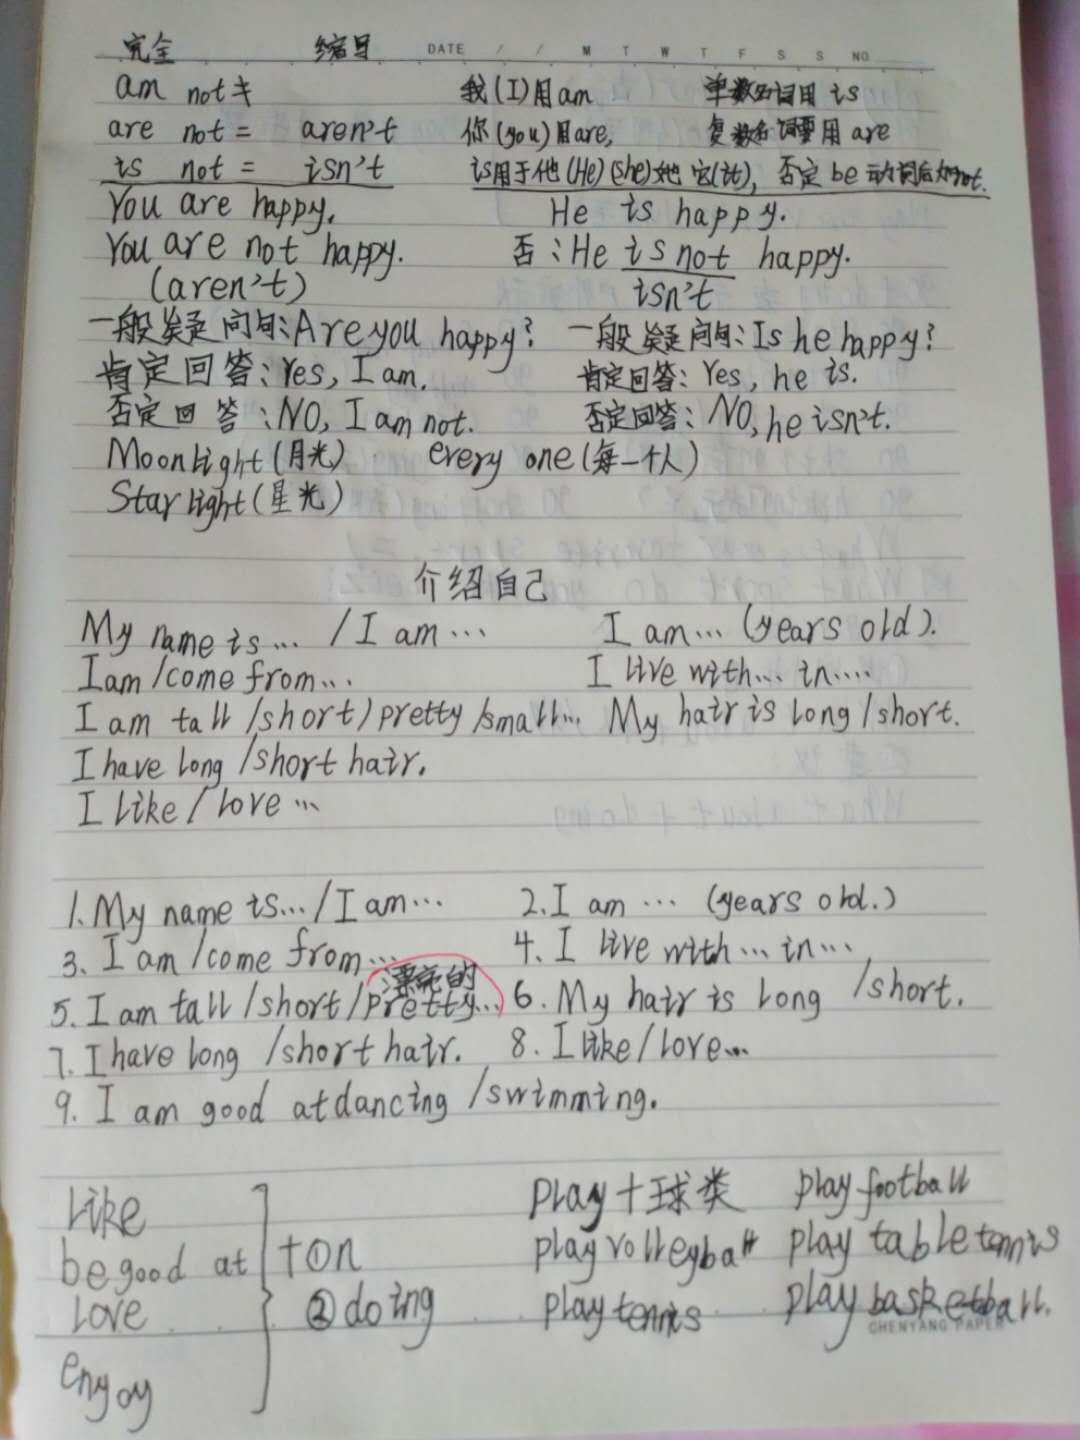 完全 缩写 DATE / / M T W T F S S NO
am not ≠ 我(I)用am 单数名词用 is
are not = aren't 你(you)用are, 复数名词要用 are
is not = isn't is用于他(He)(she)她 它(it), 否定 be 动词后加not.
You are happy. He is happy.
You are not happy. 否:He is not happy.
(aren't) isn't
一般疑问句:Are you happy? 一般疑问句:Is he happy?
肯定回答:Yes, I am. 肯定回答:Yes, he is.
否定回答:NO, I am not. 否定回答:NO, he isn't.
Moonlight(月光) every one(每一个人)
Starlight(星光)
介绍自己
My name is... / I am... I am... (years old).
I am /come from... I live with... in....
I am tall /short)pretty /small... My hair is long / short.
I have long /short hair.
I like / love ...
1. My name is... / I am... 2. I am ... (years old.)
3. I am /come from... 4. I live with... in...
漂亮的
5. I am tall /short /pretty... 6. My hair is long /short.
7. I have long /short hair. 8. I like / love...
9. I am good at dancing /swimming.
play + 球类 play football
like
be good at +①n play volleyball play table tennis
love ②doing play tennis play basketball.
CHENYANG PAPER
enjoy